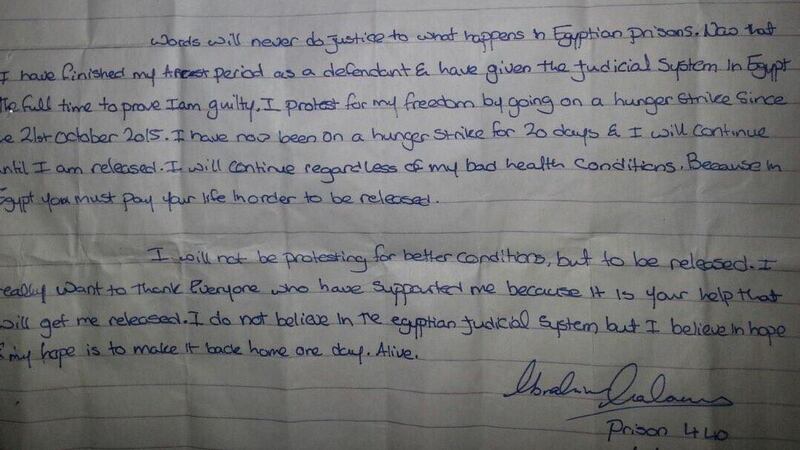 Words will never do justice to what happens in Egyptian prisons. Now that
I have finished my period as a defendant & have given the Judicial System in Egypt
the full time to prove I am guilty. I protest for my freedom by going on a hunger strike since
e 21st October 2015. I have now been on a hunger strike for 20 days & I will continue
ntil I am released. I will continue regardless of my bad health conditions. Because in
Egypt you must pay your life in order to be released.
I will not be protesting for better conditions, but to be released. I
eally want to thank Everyone who have supported me because it is your help that
will get me released. I do not believe in the egyptian judicial system but I believe in hope
& my hope is to make it back home one day. Alive.
Ibrahim Halawa
Prison 440